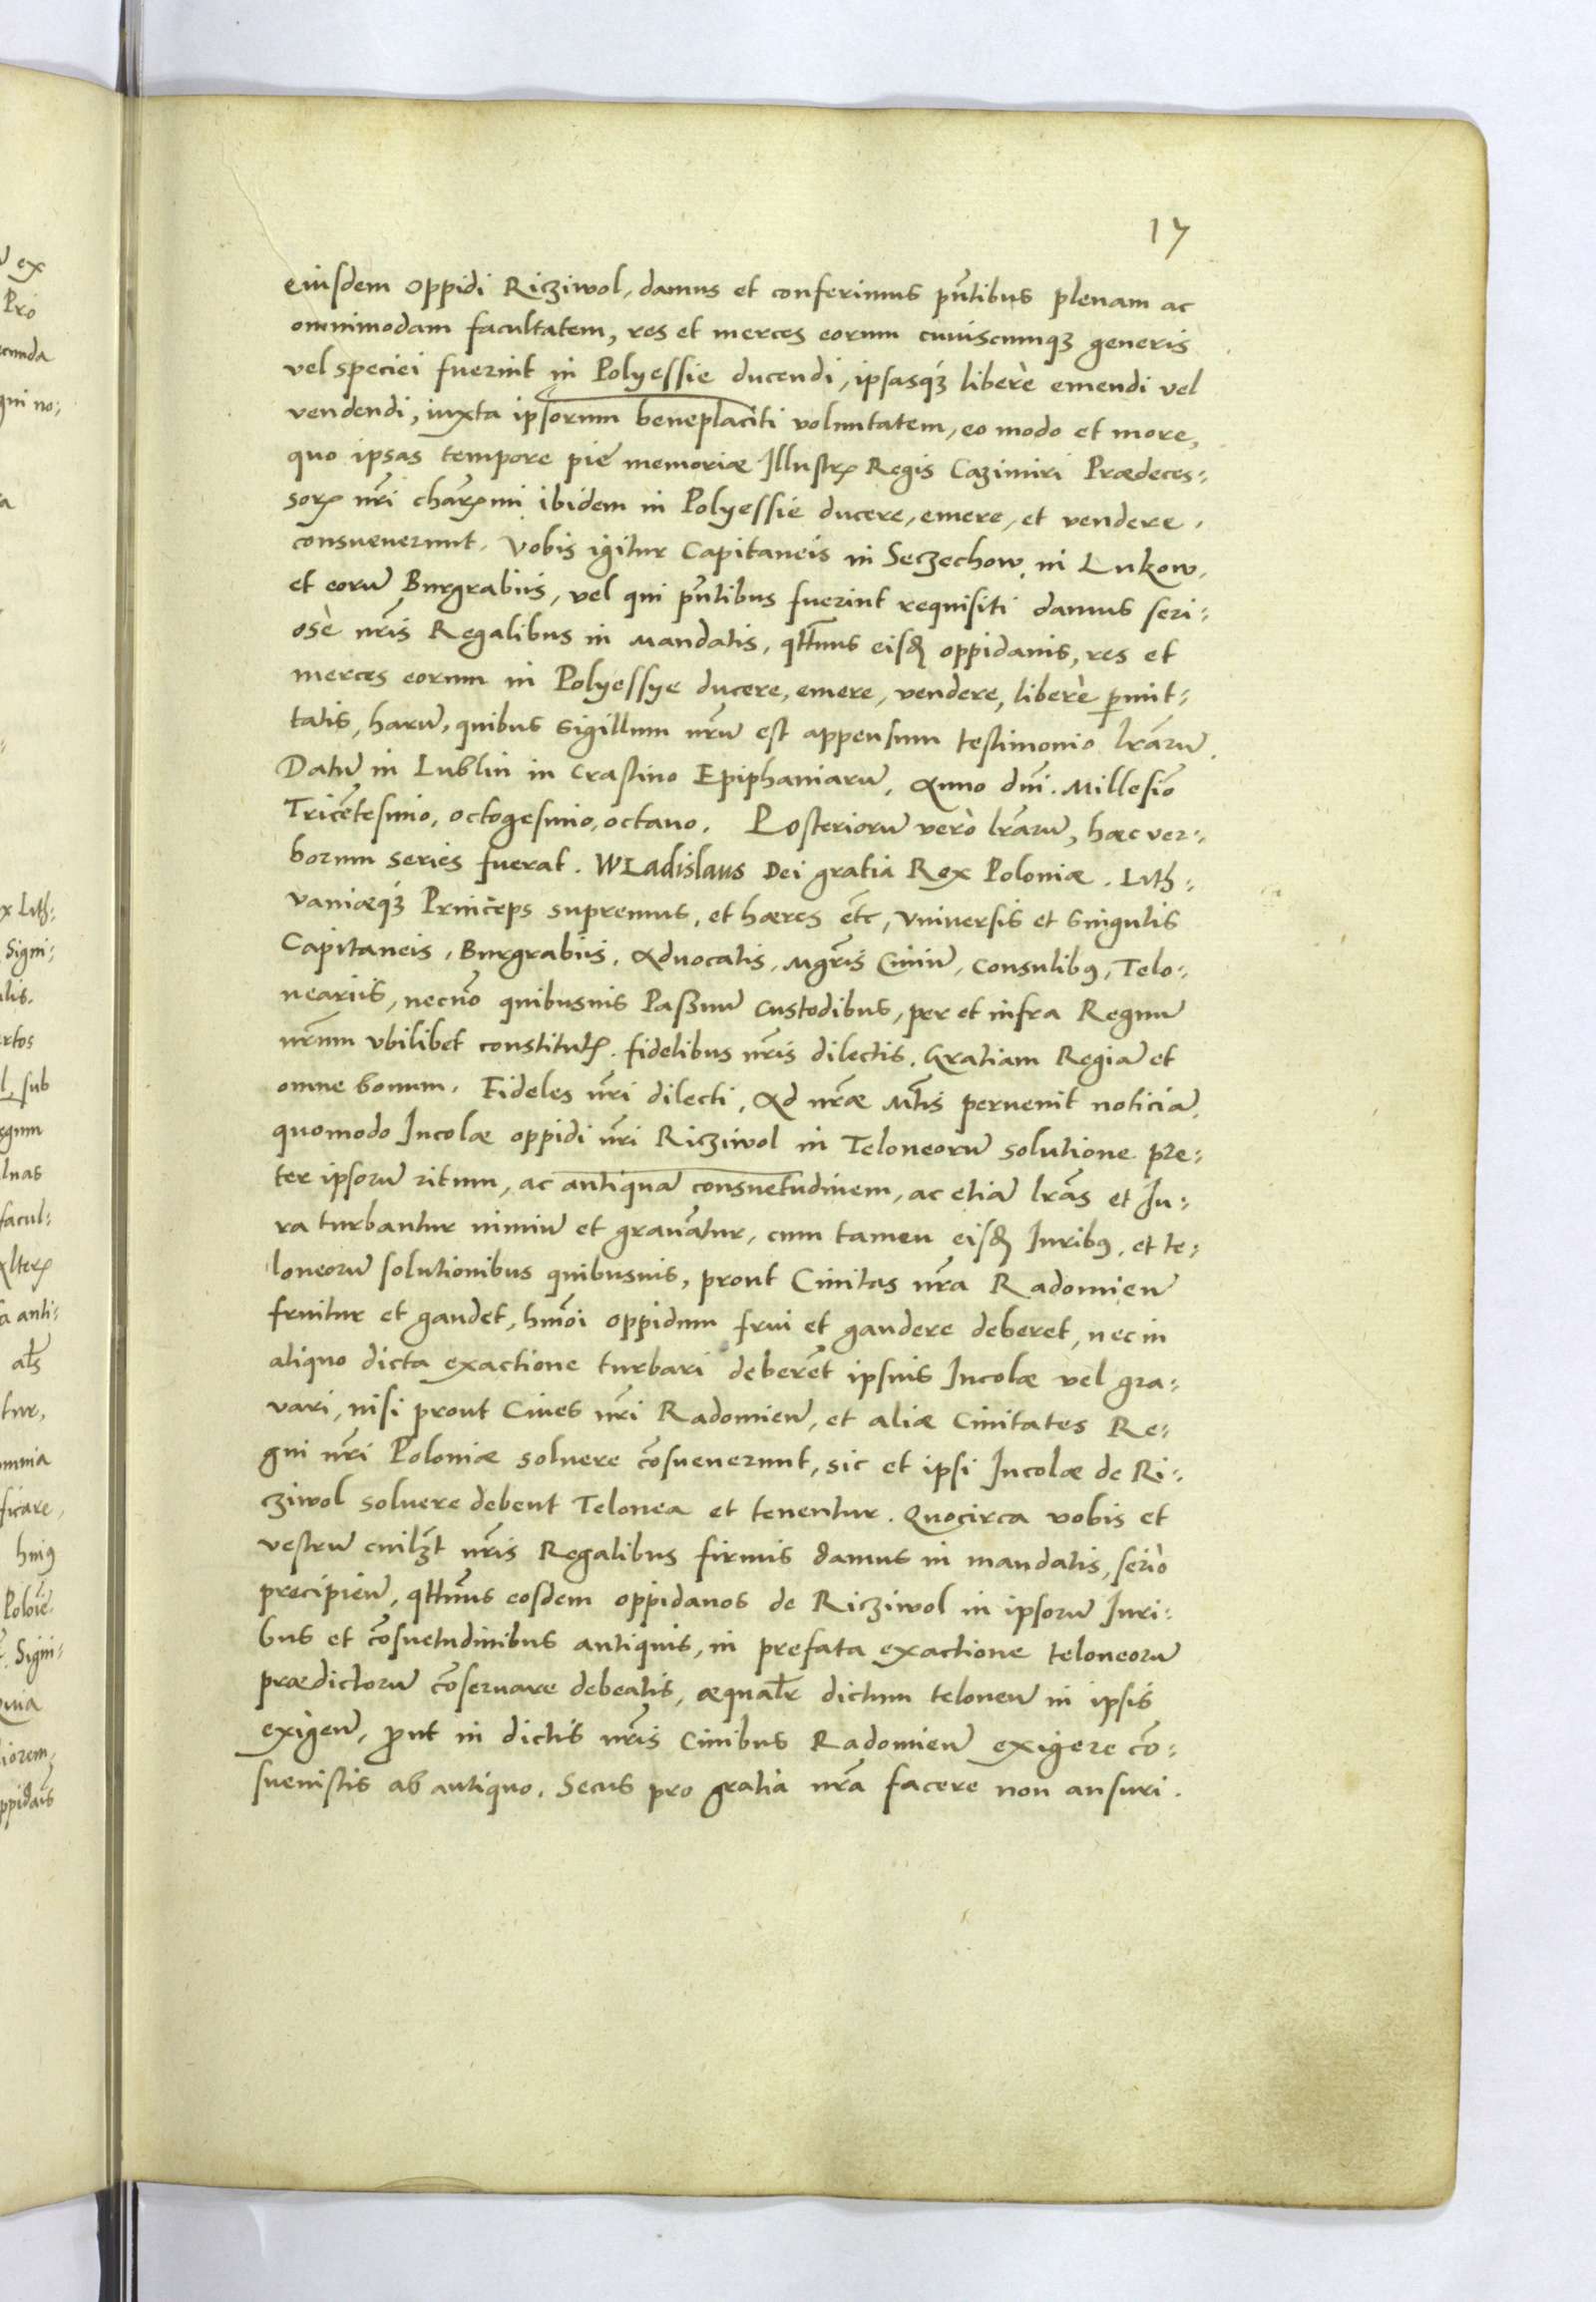 17
eiusdem oppidi Ricziwol, damus et conferimus pñtibus plenam ac
omnimodam facultatem, res et merces eorum cuiuscumqꝫ generis
vel speciei fuerint in Polyessie ducendi, ipsasqꝫ liberè emendi vel
vendendi, iuxta ipsorum beneplaciti voluntatem, eo modo et more,
quo ipsas tempore pie memoriæ Illustrꝭ Regis Cazimiri Prædeces:
sorꝭ nr̃i charꝭmi ibidem in Polyessie ducere, emere, et vendere,
consueuerunt. Vobis igitur Capitaneis in Seczechow, in Lukow,
et eorū Burgrabiis, vel qui pñtibus fuerint requisiti damus seri:
osè nr̃is Regalibus in mandatis, qttñus eisđ oppidanis, res et
merces eorum in Polyessye ducere, emere, vendere, liberè ꝑmit:
tatis, harū, quibus sigillum nr̃ū est appensum testimonio lr̃arū.
Datū in Lublin in crastino Epiphaniarū, Anno dñi. Millesīo
Tricētesimo, octogesimo, octauo. Posteriorū verò lr̃arū, hæc ver:
borum series fuerat. WLadislaus Dei gratia Rex Poloniæ. Lith:
vaniæqꝫ Princeps supremus, et hæres etc̃, Vniuersis et singulis
Capitaneis, Burgrabiis, Aduocatis, Mgr̃is Ciuiū, Consulibꝰ, Telo:
neariis, necnõ quibusuis Passuū custodibus, per et infra Regnū
nr̃um vbilibet constitutꝭ. fidelibus nr̃is dilectis. Gratiam Regiā et
omne bonum. Fideles nr̃i dilecti, Ad nr̃æ Mtĩs peruenit noticiā,
quomodo Incolæ oppidi nr̃i Ricziwol in Teloneorū solutione pre:
ter ipsorū ritum, ac antiquā consuetudinem, ac etiā lr̃as et Iu:
ra turbantur nimiū et grauātur, cum tamen eisđ Iuribꝰ, et te:
loneorū solutionibus quibusuis, prout Ciuitas nr̃a Radomien̄
fruitur et gaudet, hmõi oppidum frui et gaudere deberet, nec in
aliquo dicta exactione turbari deberēt ipsius Incolæ vel gra:
vari, nisi prout Ciues nr̃i Radomien̄, et aliæ Ciuitates Re:
gni nr̃i Poloniæ soluere cōsueuerunt, sic et ipsi Incolæ de Ri:
cziwol soluere debent Telonea et tenentur. Quocirca vobis et
vestrū cuilꝫt nr̃is Regalibus firmis damus in mandatis, seriò
precipien̄, qttñus eosdem oppidanos de Ricziwol in ipsorū Iuri:
bus et cōsuetudinibus antiquis, in prefata exactione teloneorū
prædictorū cōseruare debeatis, æqualr̃ dictum teloneū in ipsis
exigen̄, ꝓut in dictis nr̃is Ciuibus Radomien̄ exigere cō:
sueuistis ab antiquo. Secus pro gratia nr̃a facere non ausuri.